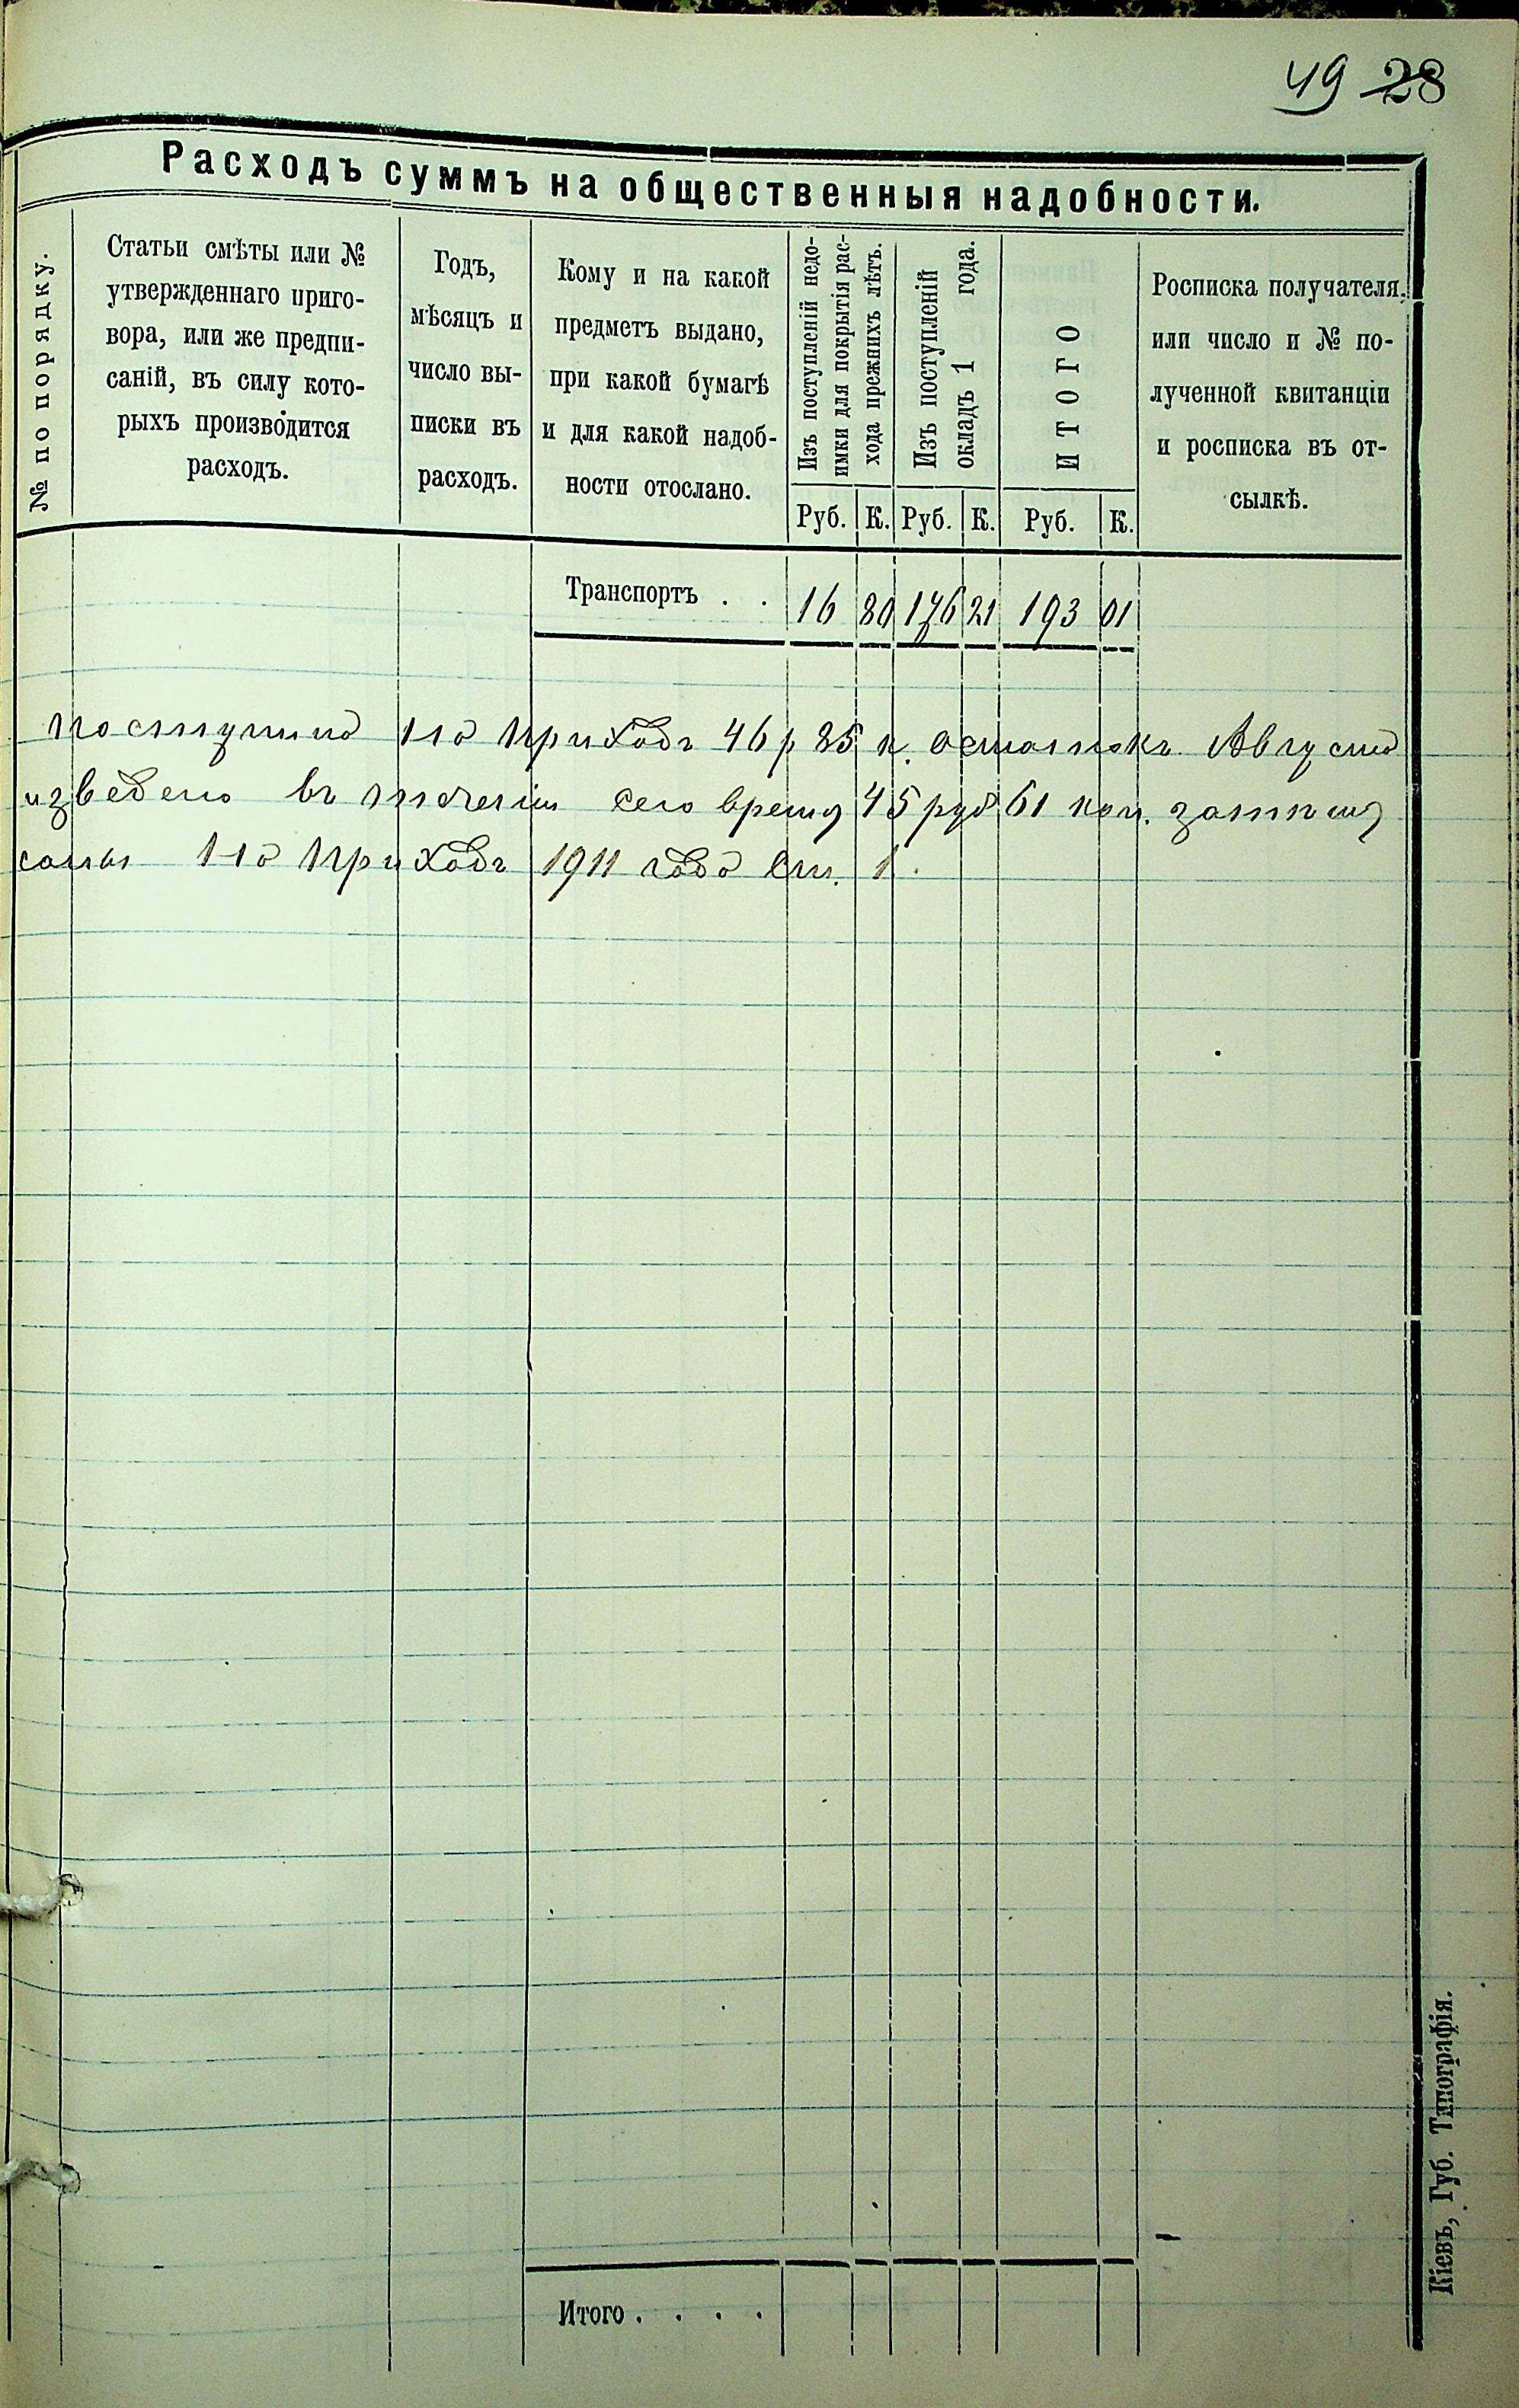 49 28
Расходъ суммъ на общественныя надобности.
№ по порядку.
Статьи смѣты или №
утвержденнаго приго-
вора, или же предпи-
саній, въ силу кото-
рыхъ производится
расходъ.
Годъ,
мѣсяцъ и
число вы-
писки въ
расходъ.
Кому и на какой
предметъ выдано,
при какой бумагѣ
и для какой надоб-
ности отослано.
Изъ поступленій недо-
имки для покрытія рас-
хода прежнихъ лѣтъ.
Изъ поступленій
окладъ 1 года.
ИТОГО
Росписка получателя,
или число и № по-
лученной квитанціи
и росписка въ от-
сылкѣ.
Руб. К. Руб. К. Руб. К.
Транспортъ . . 16 80 176 21 193 01
на приходъ 46 р 85 к. остатокъ
въ теченіи сего время 45 руб 61 коп.
на приходъ 1911 года ст. 1.
Итого . . . .
Кіевъ, Губ. Типографія.